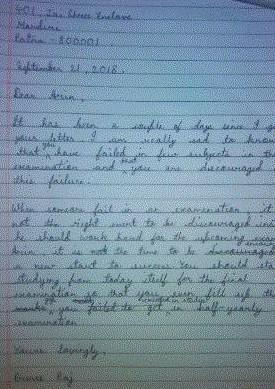 401, Jai Shree Enclave
Mandiri
Patna - 800001
September 21, 2018.
Dear Arun,
It has been a couple of days since I g
your letter. I am really sad to know
that you have failed in few subjects in th
examination and that you are discouraged
this failure.
When someone fail in an examination, it
not the right ment to be discouraged in
he should work hard for the upcoming exam
it is not the time to be discouraged
a new start to success. You should sta
studying from today itself for the final
examination so that you even fill up the
marks you failed to get in half-yearly
examination
Yours lovingly,
Raj